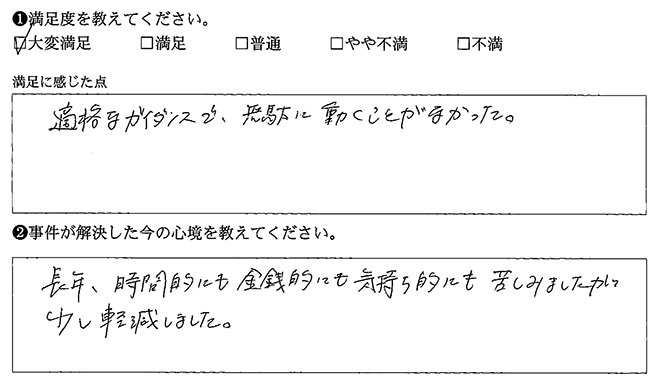 ❶満足度を教えてください。
☑大変満足 □満足 □普通 □やや不満 □不満
満足に感じた点
適格なガイダンスで、無駄に動くことがなかった。
❷事件が解決した今の心境を教えてください。
長年、時間的にも金銭的にも気持ち的にも苦しみましたが
少し軽減しました。